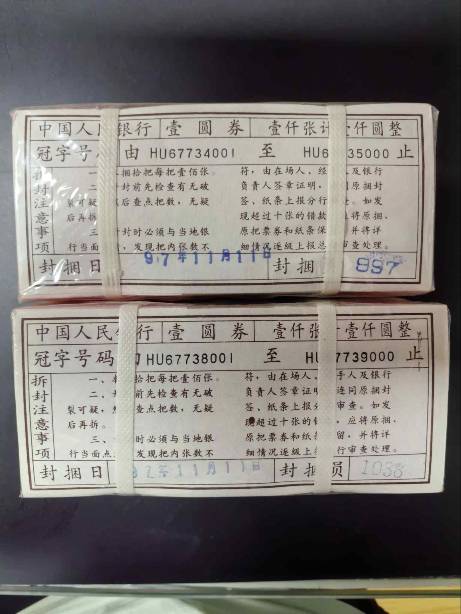 中国人民银行 壹圆券 壹仟张计 仟圆整
冠字号 由 HU67734001 至 HU6 35000 止
拆封注意事项
捆拾把每把壹佰张。
二 封前先检查有无破
裂可疑 后查点把数,无疑
后再拆。
三 封时必须与当地银
行当面 ,发现把内张数不
符,由在场人、经 及银行
负责人签章证明, 同原捆封
签、纸条上报分行 如发
现超过十张的错款 应将原捆
原把票券和纸条保 并将详
细情况逐级上报总 审查处理。
封捆日 97年11月11日 封捆 997
中国人民银行 壹圆券 壹仟张 壹仟圆整
冠字号码 HU67738001 至 HU 7739000 止
拆封注意事项
一、 拾把每把壹佰张。
二 前先检查有无破
裂可疑,然 查点把数,无疑
后再拆。
三、 时必须与当地银
行当面点 发现把内张数不
符,由在场人、 手人及银行
负责人签章证明 连同原捆封
签、纸条上报分 审查。如发
现超过十张的错 ,应将原捆
原把票券和纸条 留,并将详
细情况逐级上报 行审查处理。
封捆日 97年11月11日 封捆员 1038